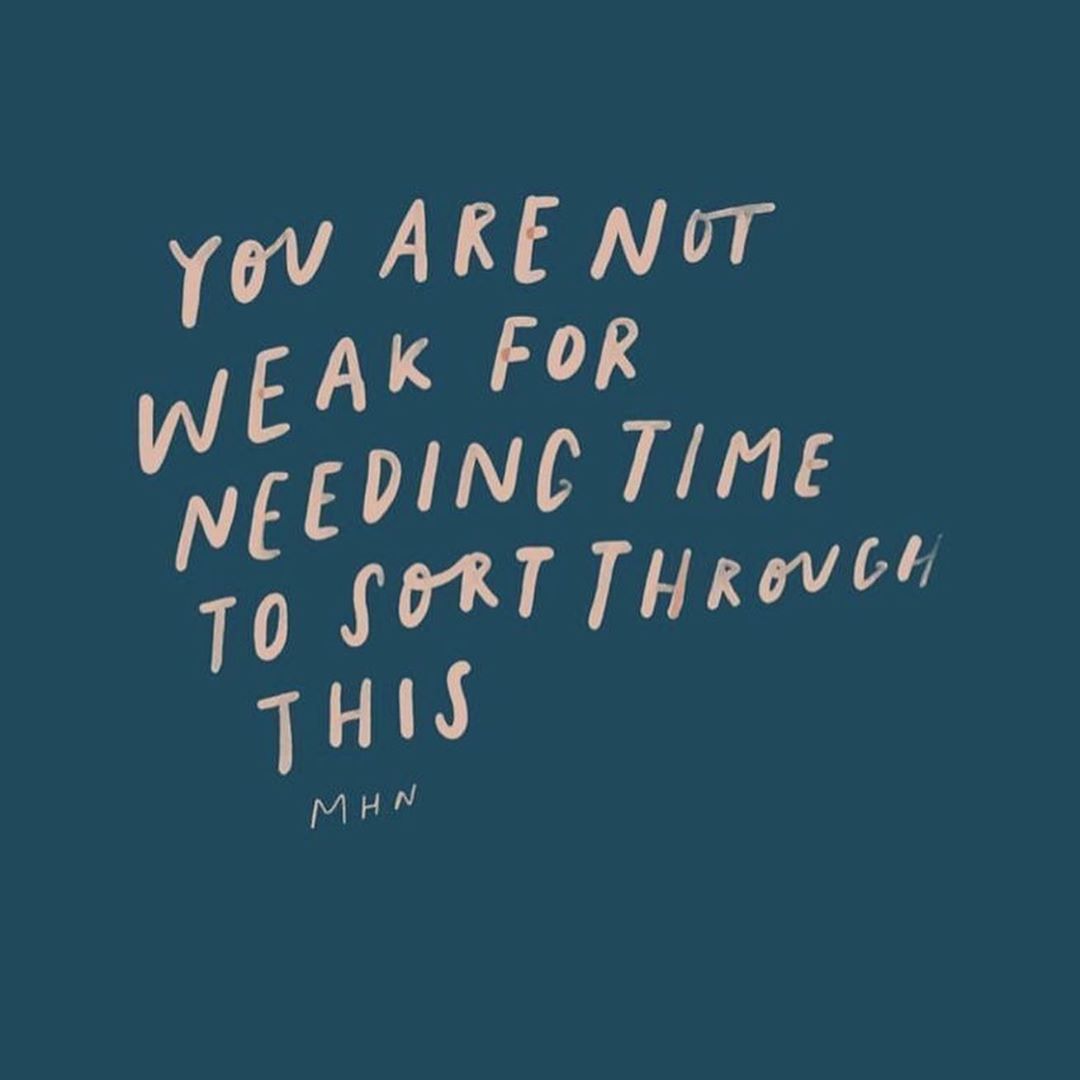 YOU ARE NOT
WEAK FOR
NEEDING TIME
TO SORT THROUGH
THIS
MHN